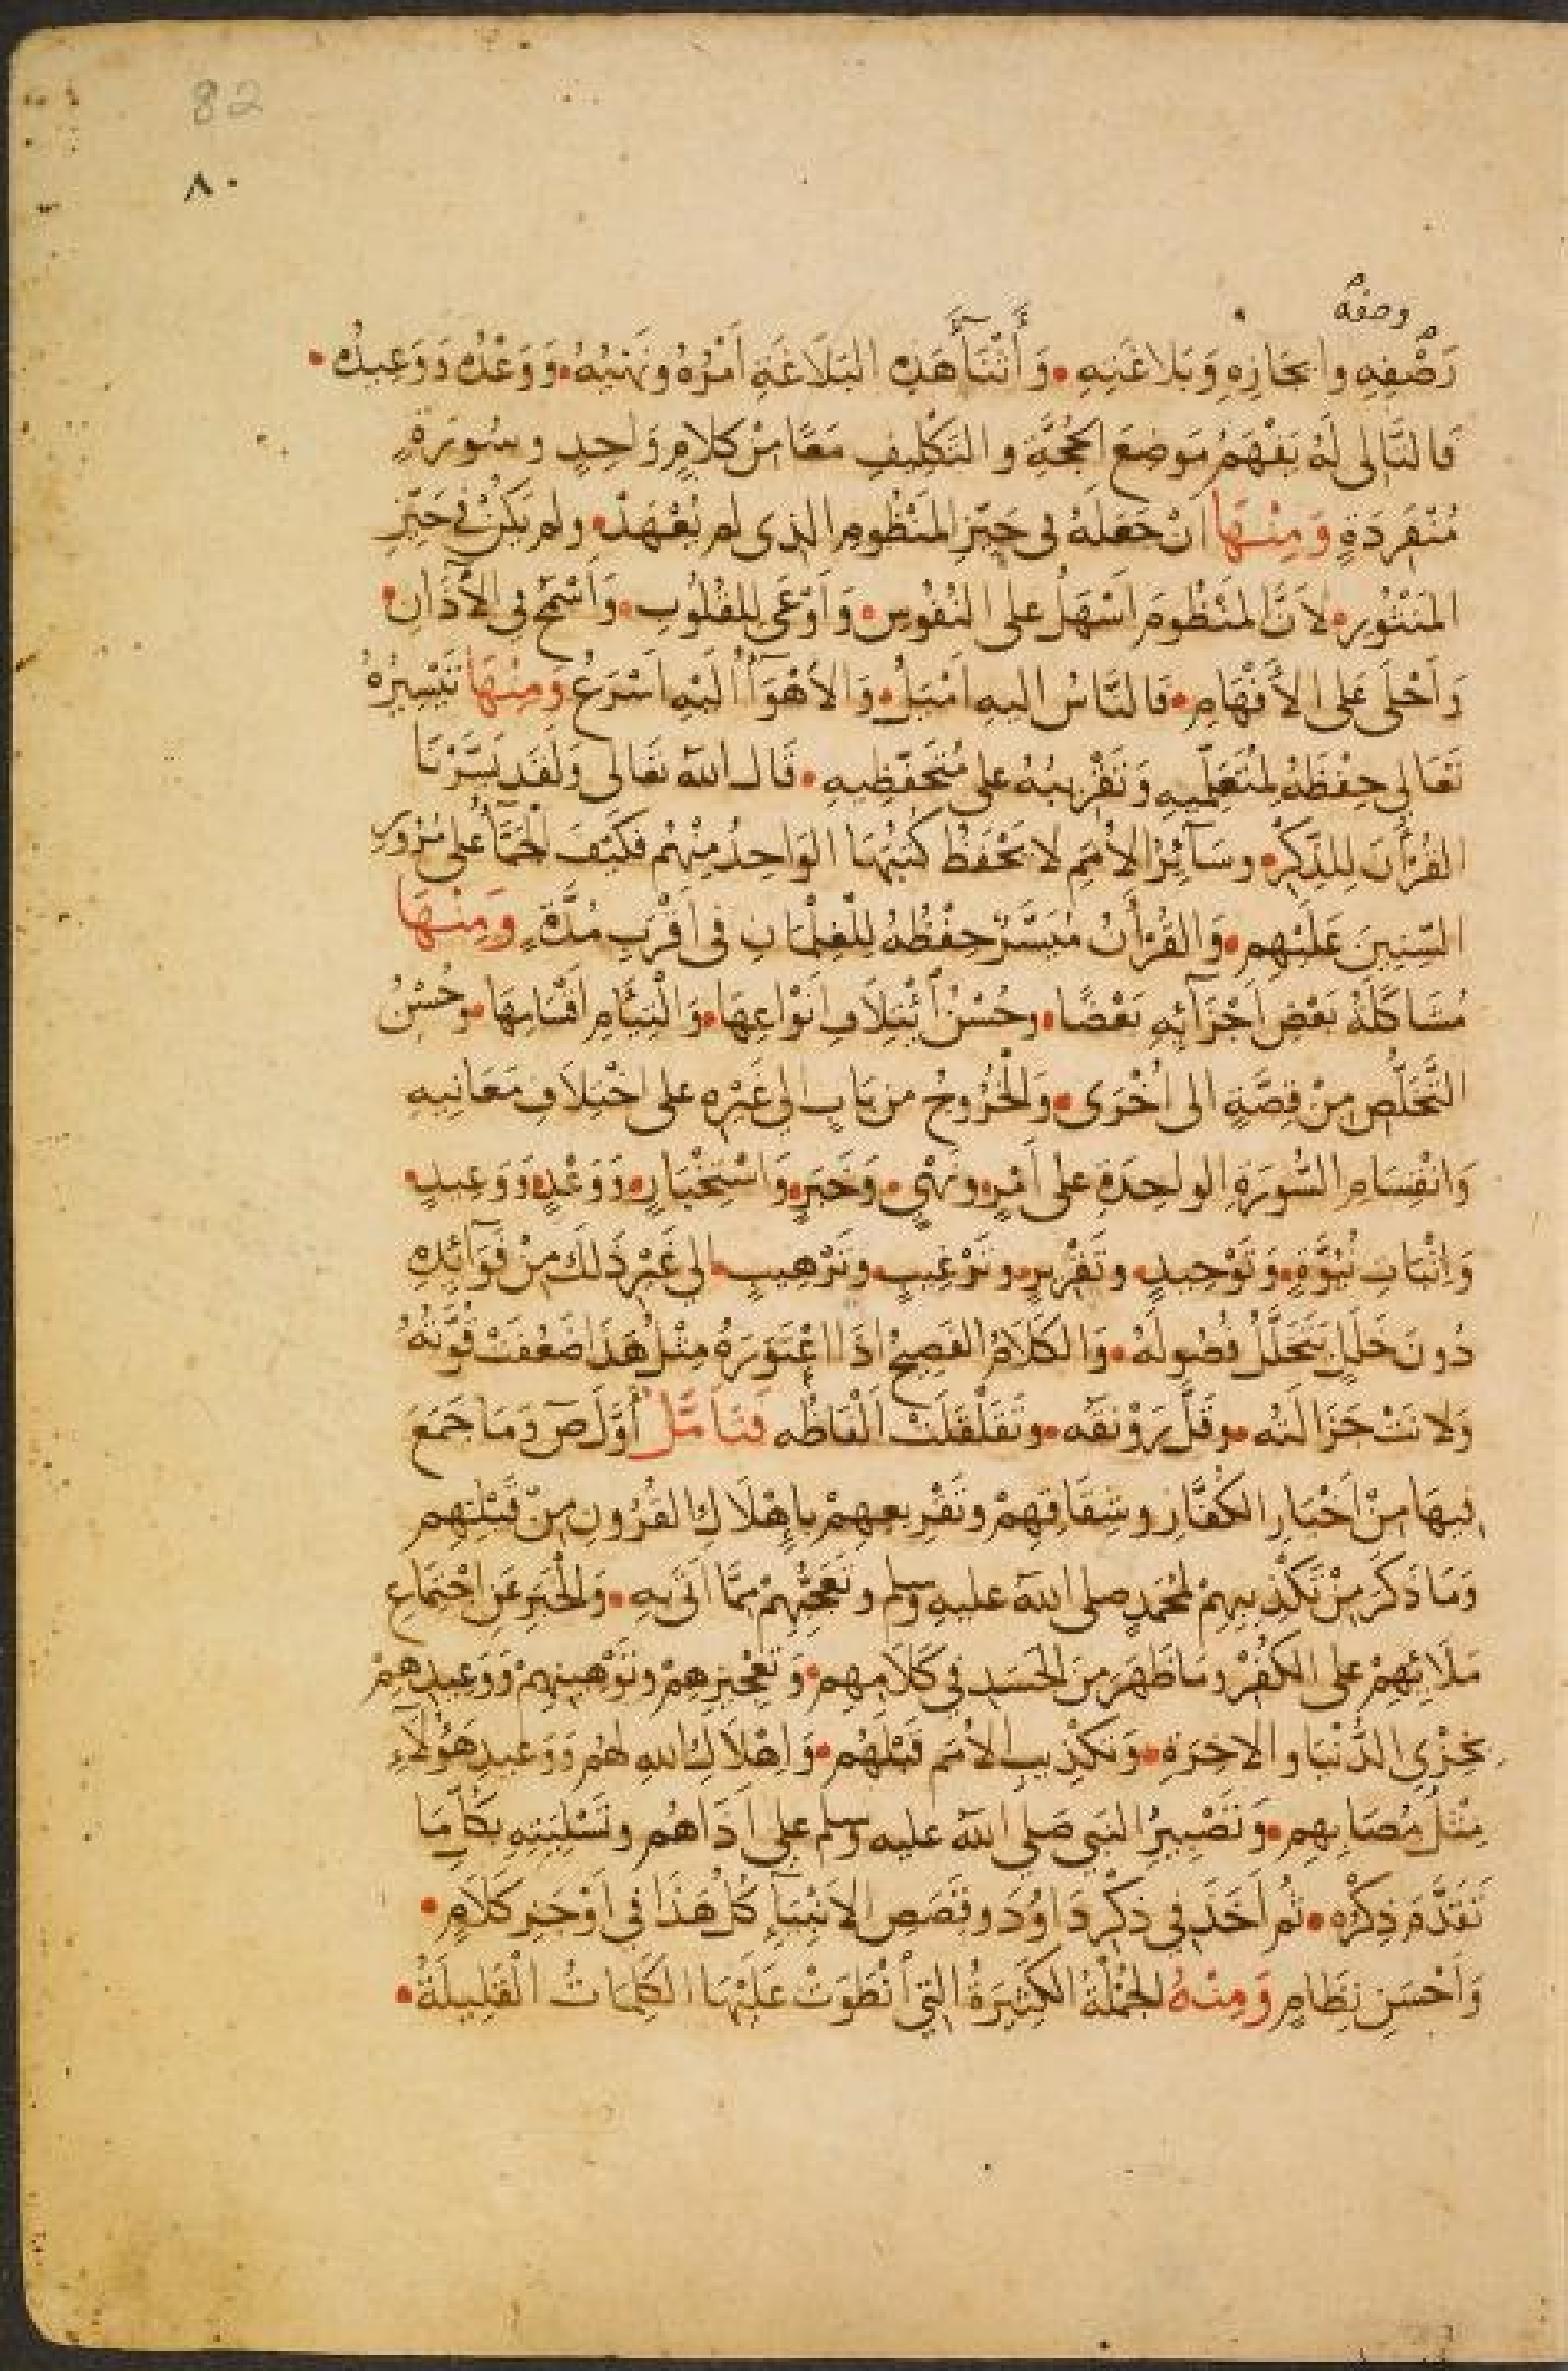 82
٨٠
وصفه
رَصْفِهِ وايجَازِهِ وَبَلاغَتِهِ • وَأَثْنَآءَ هَذِهِ البَلَاغَةِ اَمْرُهُ ونَهْيُهُ • وَوَعْدُهُ وَوَعِيدُهُ •
فَالتَّالى لَهُ يَفْهَمُ مَوضِعَ الحُجَّةِ والتَكْلِيفِ مَعًا مِنْ كلامٍ وَاحِدٍ وسُورَةٍ
مُنْفَرِدَةٍ وَمِنْهَا انْ جَعَلَهُ فى حَيّزِ المَنْظُومِ الذى لم يُعْهَدْ • ولم يَكُنْ فى حَيّزِ
المَنْثُورِ • لاَنَّ المَنْظُومَ اَسْهَلُ على النُفُوسِ • وَاَوْعَى لِلقُلُوبِ • وَاَسْمَحُ فى الآذَانِ •
وَاَحْلَى عَلى الأَفْهَامِ • فَالنَّاسُ اليهِ اَمْيَلُ • وَالاَهْوَآءُ الَيْهِ اَسْرَعُ وَمِنْهَا تَيْسِيرُهُ
تَعَالى حِفْظَهُ لِمُتَعَلِّمِيهِ وَتَقْرِيبُهُ على مُتَحَفِّظِيهِ • قَالَ اللهُ تَعَالى وَلَقَد يَسَّرْنَا
القُرْآنَ لِلذِّكرِ • وسَآئِرُ الاُمَمِ لا يَحْفَظُ كُتُبَهَا الوَاحِدُ مِنْهُم فكَيْفَ الْجَمَّآءُ على مُرُورِ
السِّنِينَ عَلَيْهِم • وَالقُرْآنُ مُيَسَّرٌ حِفْظُهُ لِلْغِلْمَانِ فى اَقْرَبِ مُدَّةٍ وَمِنْهَا
مُشَاكَلَةُ بَعْضِ اَجْزَآئِهِ بَعْضًا • وحُسْنُ ائْتِلَافِ اَنْوَاعِهَا • وَالْتِيَامِ اَقْسَامِهَا • وحُسْنُ
التَّخَلُّصِ مِنْ قِصَّةٍ الى اُخْرَى • وَالْخُرُوجُ من بَابٍ الى غَيْرِهِ على اخْتِلَافِ مَعَانِيهِ
وَانْقِسَامِ السُّورَةِ الواحِدَةِ على اَمْرٍ • ونَهْىٍ • وَخَبَرٍ • وَاسْتِخْبَارٍ • وَوَعْدٍ • وَوَعِيدٍ •
وَاِثْبَاتِ نُبُوَّةٍ • وَتَوْحِيدٍ • وتَقْرِيرٍ • وتَرْغِيبٍ • وتَرْهِيبٍ • الى غَيْرِ ذَلكَ مِنْ فَوَآئِدِهِ
دُونَ خَلَلٍ يَتَخَلَّلُ فُصُولَهُ • وَالكَلَامُ الفَصِيحُ اِذَا اعْتَوَرَهُ مِثْلُ هَذَا ضَعُفَتْ قُوَّتُهُ
وَلانَتْ جَزَالَتُه • وقَلَّ رَوْنَقُه • وتَقَلْقَلَتْ اَلْفَاظُه فَتَاَمَّل اَوَّلَ صٓ وَمَا جَمَعَ
فِيهَا مِنْ اَخْبَارِ الكُفَّارِ وشِقَاقِهِمْ وتَقْرِيعِهِمْ بِاِهْلَاكِ القُرُونِ مِنْ قَبْلِهِم
وَمَا ذَكَرَ مِنْ تَكْذِيبِهِمْ لمُحَمَّدٍ صلى اللهُ عليهِ وسلم وتَعَجُّبِهِمْ مِمَّا اَتَى بِهِ • وَالْخَبَرِ عَنِ اجْتِمَاعِ
مَلَائِهِمْ على الكُفْرِ ومَا ظَهَرَ مِنَ الحَسَدِ فى كَلَامِهِم • وَتَعْجِيزِهِمْ وتَوْهِينِهِمْ وَوَعِيدِهِمْ
بِخِزْىِ الدُّنْيَا والاخِرَةِ • وَتَكْذِيبِ الاُمَمِ قَبْلَهُم • وَاِهْلَاكِ اللهِ لهُم وَوَعِيدِ هَؤُلَآءِ
مِثْلَ مُصَابِهِم • وَتَصْبِيرُ النَبى صَلى اللهُ عليه وسلم على اَذَاهُم وتَسْلِيَتِهِ بكُلِّ مَا
تَقَدَّمَ ذِكْرُه • ثُم اَخَذَ فى ذكْرِ دَاوُدَ وقِصَصِ الاَنْبِيَآءِ كُلُّ هَذَا فى اَوْجَزِ كَلَامٍ •
وَاَحْسَنِ نِظَامٍ وَمِنْهُ الجُمْلَةُ الكَثِيرَةُ التى انْطَوَتْ عَلَيْهَا الكَلِمَاتُ الْقَلِيلَةُ •